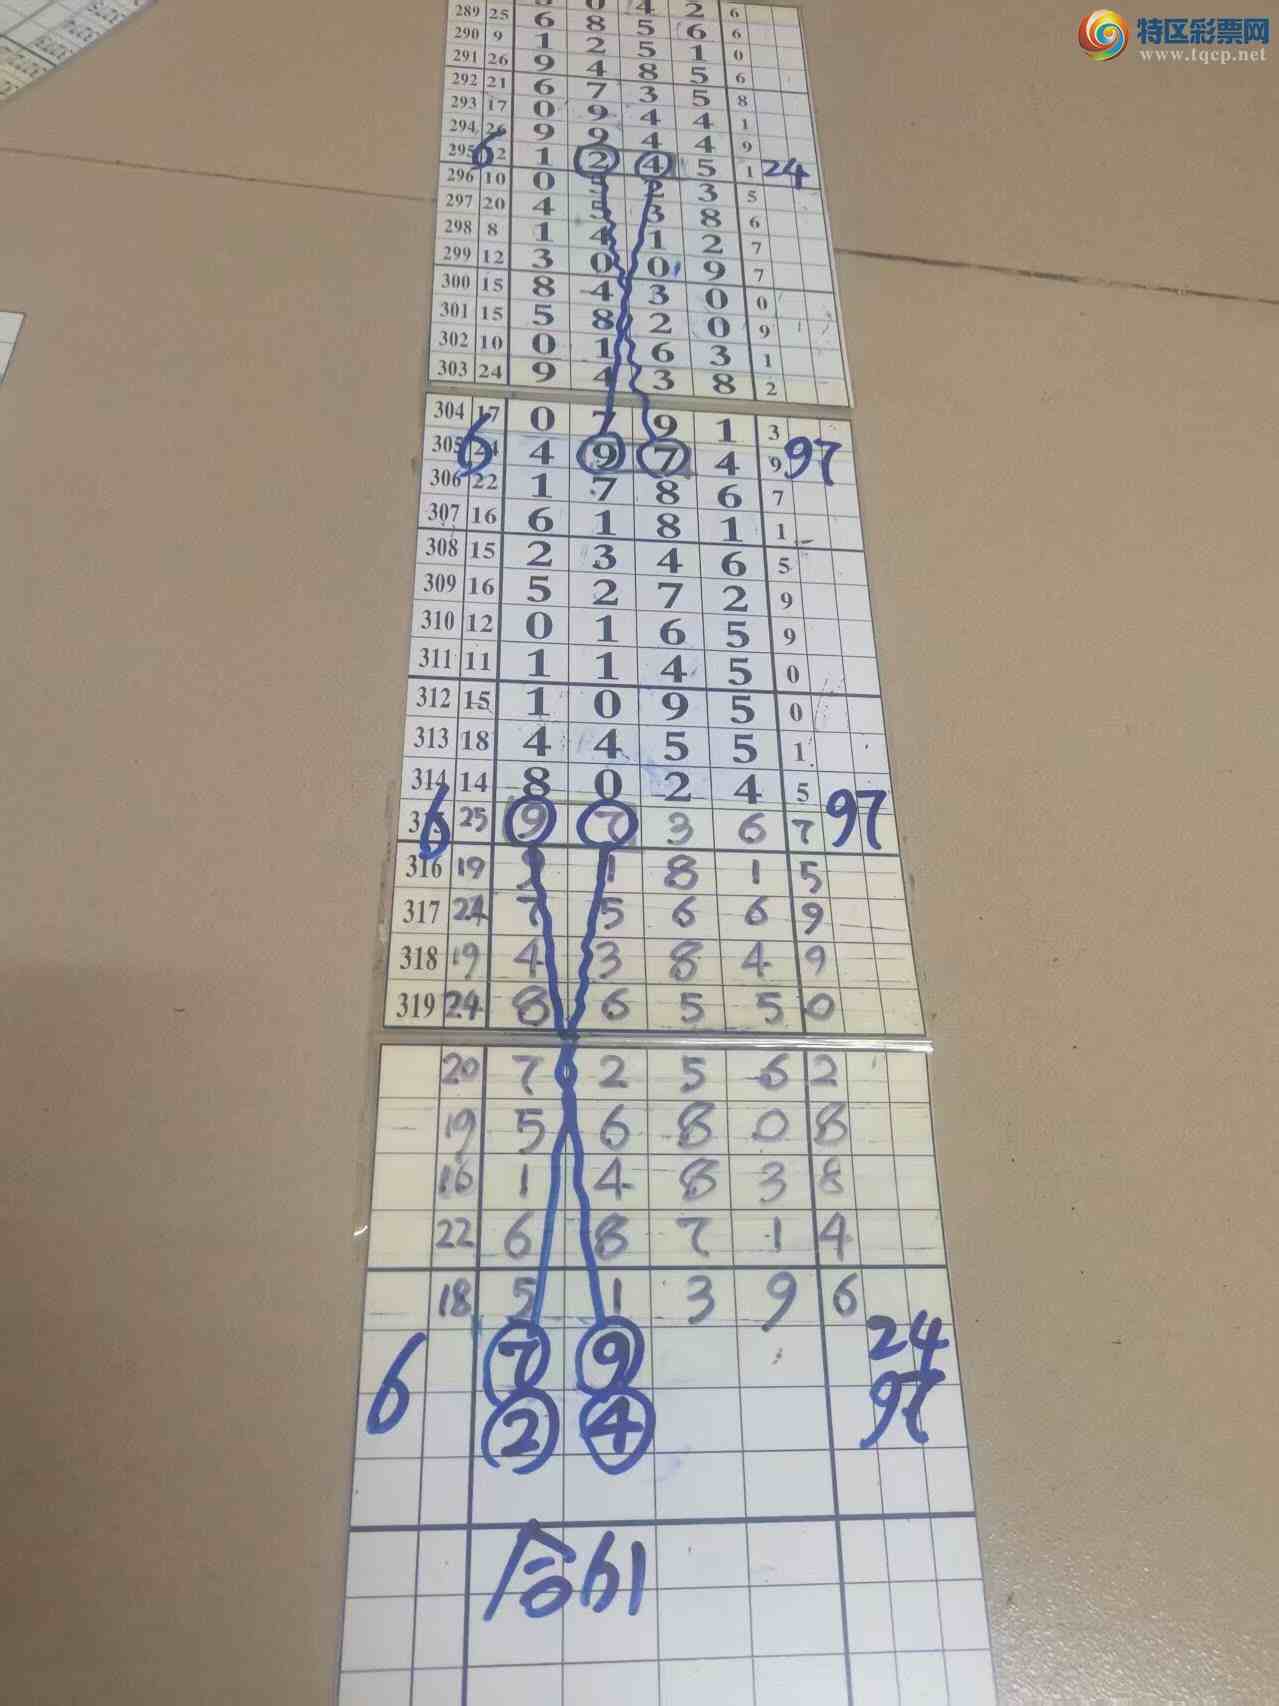 特区彩票网
www.tqcp.net
289 25 6 8 5 6 6
290 9 1 2 5 1 0
291 26 9 4 8 5 6
292 21 6 7 3 5 8
293 17 0 9 4 4 1
294 26 9 9 4 4 9
295 12 1 2 4 5 1 24
6
296 10 0 5 2 3 5
297 20 4 5 3 8 6
298 8 1 4 1 2 7
299 12 3 0 0 9 7
300 15 8 4 3 0 0
301 15 5 8 2 0 9
302 10 0 1 6 3 1
303 24 9 4 3 8 2
304 17 0 7 9 1 3
305 24 4 9 7 4 9 97
6
306 22 1 7 8 6 7
307 16 6 1 8 1 1
308 15 2 3 4 6 5
309 16 5 2 7 2 9
310 12 0 1 6 5 9
311 11 1 1 4 5 0
312 15 1 0 9 5 0
313 18 4 4 5 5 1
314 14 8 0 2 4 5
315 25 9 7 3 6 7 97
6
316 19 9 1 8 1 5
317 24 7 5 6 6 9
318 19 4 3 8 4 9
319 24 8 6 5 5 0
20 7 2 5 6 2
19 5 6 8 0 8
16 1 4 8 3 8
22 6 8 7 1 4
18 5 1 3 9 6
7 9 24
6
2 4 97
合61